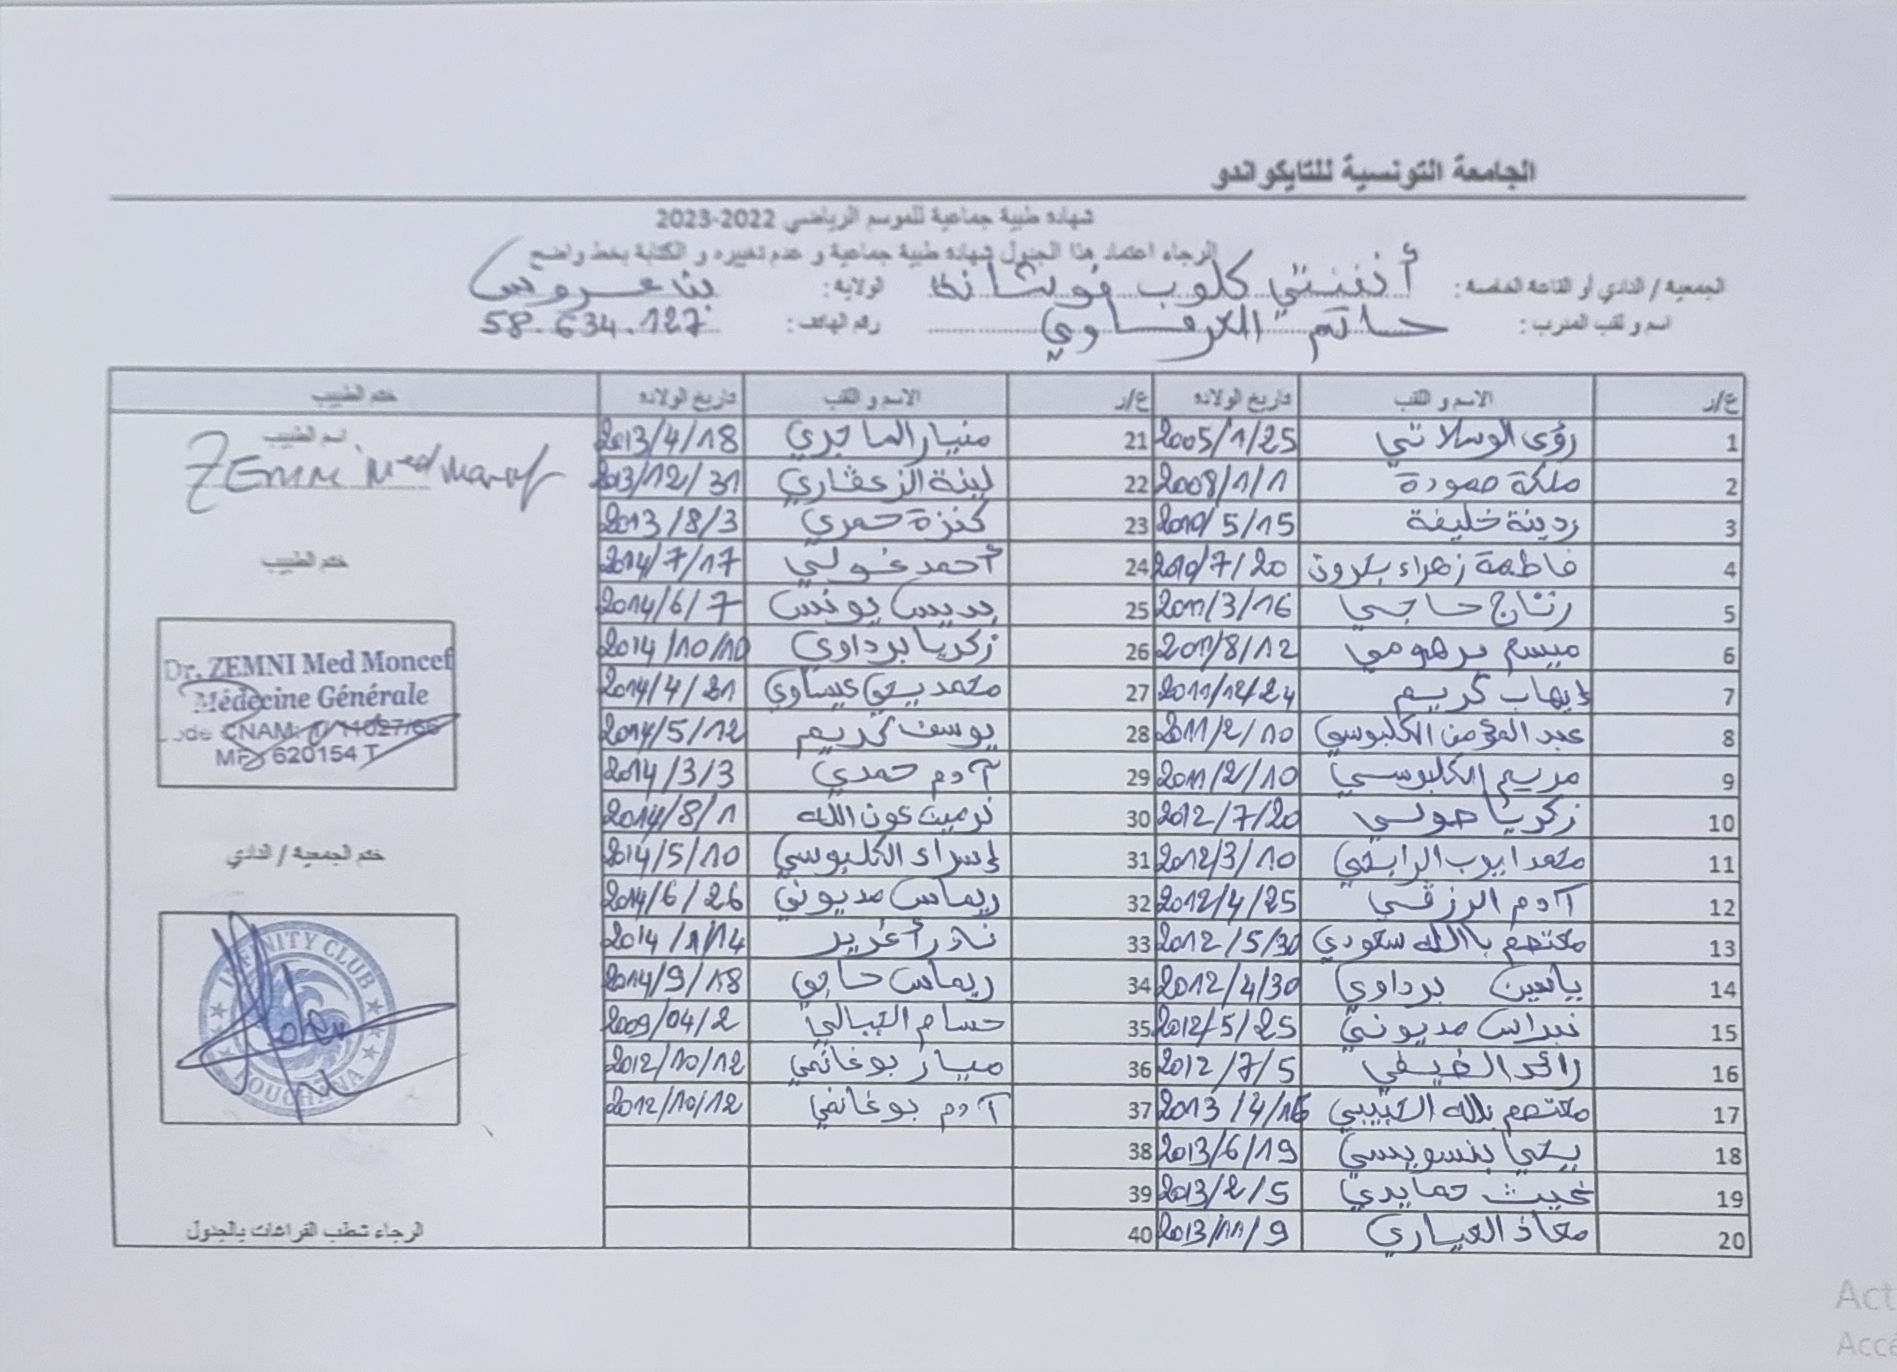 الجامعة التونسية للتايكواندو
شهادة طبية جماعية للموسم الرياضي 2022-2023
الرجاء اعتماد هذا الجدول شهادة طبية جماعية و عدم تغييره و الكتابة بخط واضح
الجمعية / النادي أو القاعة الخاصة : أنفنتي كلوب فوشانة الولاية: بن عروس
اسم و لقب المدرب : حاتم العرفاوي رقم الهاتف: 58.634.127
ع/ر الاسم و اللقب تاريخ الولادة ع/ر الاسم و اللقب تاريخ الولادة ختم الطبيب
1 رؤى الوسلاتي 2005/1/25 21 منيار الماجري 2013/4/18
2 ملكة حمودة 2008/1/1 22 لبنة الزعفاري 2013/12/31
3 ردينة خليفة 2010/5/15 23 كنزة حمري 2013/8/3
4 فاطمة زهراء 2010/7/20 24 أحمد غولي 2014/7/17
5 رتاج حاجي 2011/3/16 25 بديس يونس 2014/6/7
6 ميسم برهومي 2011/8/12 26 زكريا برداوي 2014/10/10
7 إيهاب كريم 2011/12/24 27 محمد يحي عيساوي 2014/4/21
8 عبد المؤمن الكلبوسي 2011/2/10 28 يوسف كريم 2014/5/12
9 مريم الكلبوسي 2011/2/10 29 آدم حمدي 2014/3/3
10 زكريا صولي 2012/7/20 30 نرمين عون الله 2014/8/1
11 محمد ايوب الرابحي 2012/3/10 31 إسراء الكلبوسي 2014/5/10
12 آدم الرزقي 2012/4/25 32 ريماس مديوني 2014/6/26
13 معتصم باالله سعودي 2012/5/30 33 نادر أغرير 2014/1/14
14 ياسين برداوي 2012/4/30 34 ريماس حاجي 2014/9/18
15 نبراس مديوني 2012/5/25 35 حسام الجبالي 2009/04/2
16 رائد الضيفي 2012/7/5 36 ميار بوغانمي 2012/10/12
17 معتصم بالله الحبيبي 2013/4/16 37 آدم بوغانمي 2012/10/12
18 يحي بنسويسي 2013/6/19 38
19 غيث حمايدي 2013/2/5 39
20 معاذ العياري 2013/11/9 40
اسم الطبيب
ZEMNI Med Moncef
ختم الطبيب
Dr. ZEMNI Med Moncef
Médecine Générale
Code CNAM: 1/11027/66
MF: 620154 T
ختم الجمعية / النادي
INFINITY CLUB
FOUCHANA
الرجاء شطب الفراغات بالجدول
Act
Acce